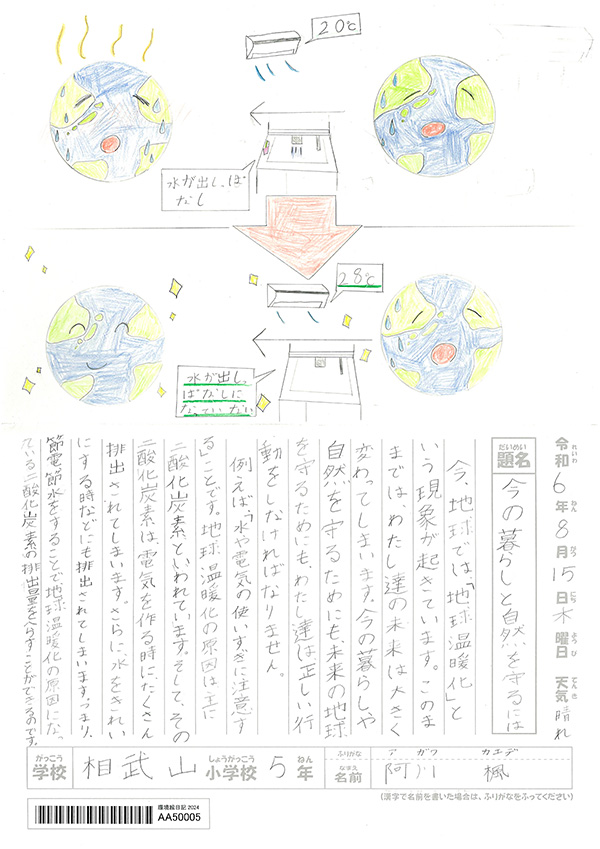 20℃
水が出しっぱ
なし
28℃
水が出しっ
ぱなしに
なっていない
令和6年8月15日木曜日 天気 晴れ
れいわ ねん がつ にち ようび てんき
だいめい
題名
今の暮らしと自然を守るには
今、地球では「地球温暖化」と
いう現象が起きています。このま
までは、わたし達の未来は大きく
変わってしまいます。今の暮らしや
自然を守るためにも、未来の地球
を守るためにも、わたし達は正しい行
動をしなければなりません。
例えば、「水や電気の使いすぎに注意す
る」ことです。地球温暖化の原因は主に
二酸化炭素といわれています。そして、その
二酸化炭素は、電気を作る時に、たくさん
排出されてしまいます。さらに、水をきれい
にする時などにも排出されてしまいます。つまり、
節電節水をすることで、地球温暖化の原因になっ
ている二酸化炭素の排出量をへらすことができるのです。
がっこう しょうがっこう ねん
学校 相武山 小学校 5年
ふりがな ア ガワ カエデ
なまえ
名前 阿川 楓
(漢字で名前を書いた場合は、ふりがなをふってください)
環境絵日記 2024
AA50005